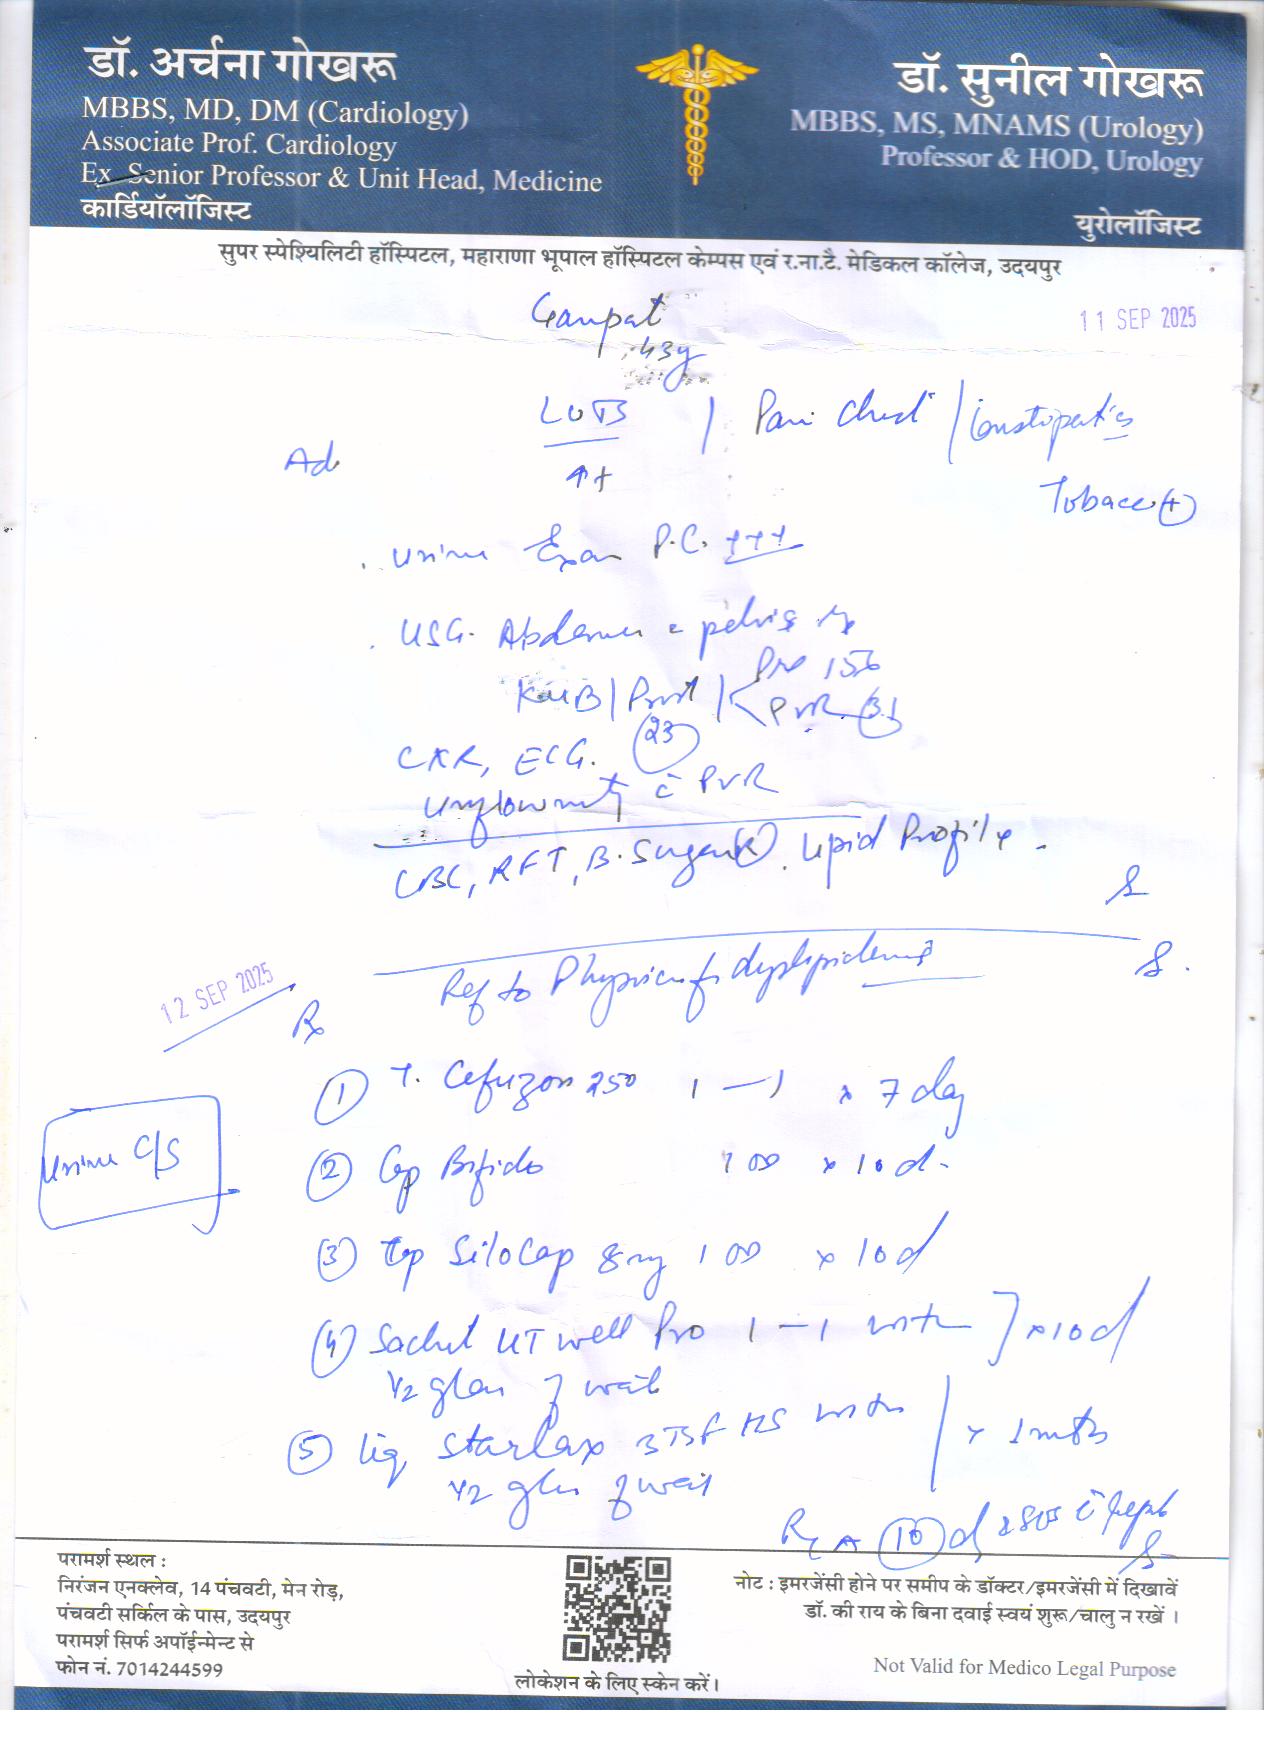 डॉ. अर्चना गोखरू
MBBS, MD, DM (Cardiology)
Associate Prof. Cardiology
Ex. Senior Professor & Unit Head, Medicine
कार्डियॉलॉजिस्ट
डॉ. सुनील गोखरू
MBBS, MS, MNAMS (Urology)
Professor & HOD, Urology
युरोलॉजिस्ट
सुपर स्पेश्यिलिटी हॉस्पिटल, महाराणा भूपाल हॉस्पिटल केम्पस एवं र.ना.टै. मेडिकल कॉलेज, उदयपुर
Ganpat
43y
11 SEP 2025
LUTS / Pain Chest / Constipation
Ad
↑+
Tobacco (+)
Urine Exam P.C. +++
USG. Abdomen pelvis
KUB / Prost / Pre 156
PVR 31
CXR, ECG. (23)
Uroflowmetry c̄ PVR
CBC, RFT, B. Sugar (R). Lipid Profile.
Ref to Physician for dyslipidemia
12 SEP 2025
Rx
① T. Cefuzon 250 1—1 x 7 day
Urine C/S
② Cap Bifido 1 OD x 10 d.
③ Cap Silocap 8mg 1 OD x 10 d
④ Sachet UT well Pro 1—1 with ] x 10 d
1/2 glass of water
⑤ Liq. Starlax 3 TSF HS with / x 1 mth
1/2 glass of water
R A (10) d
परामर्श स्थल :
निरंजन एनक्लेव, 14 पंचवटी, मेन रोड़,
पंचवटी सर्किल के पास, उदयपुर
परामर्श सिर्फ अपॉईन्मेन्ट से
फोन नं. 7014244599
लोकेशन के लिए स्केन करें।
नोट : इमरजेंसी होने पर समीप के डॉक्टर/इमरजेंसी में दिखावें
डॉ. की राय के बिना दवाई स्वयं शुरू/चालु न रखें ।
Not Valid for Medico Legal Purpose